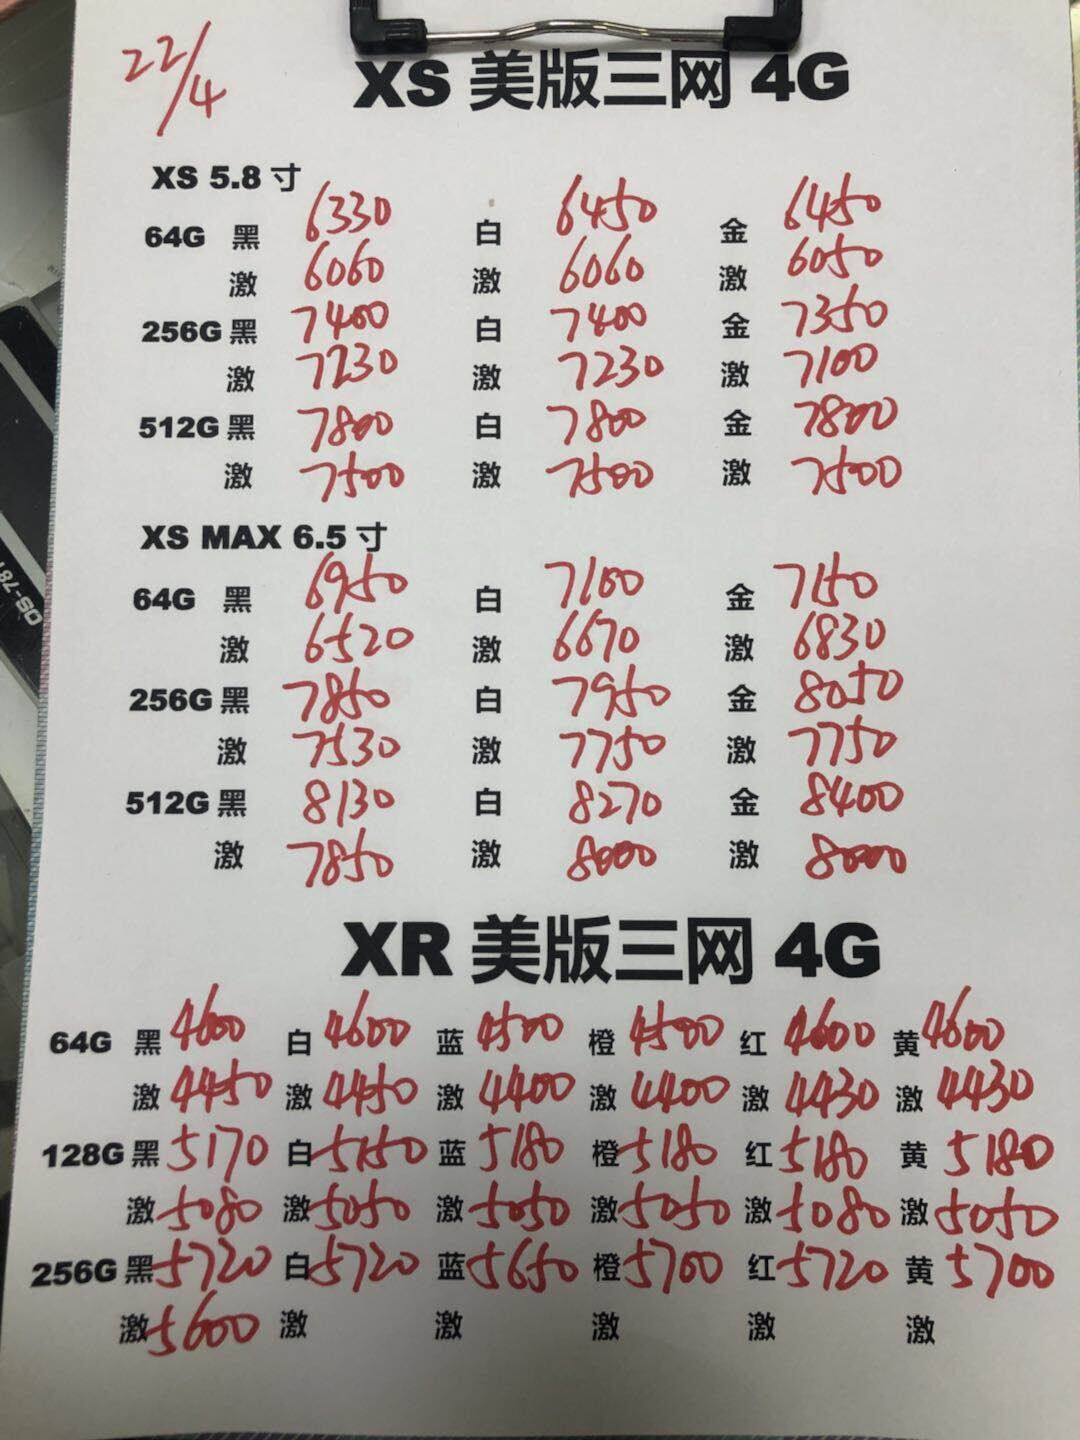 22/4
XS 美版三网 4G
XS 5.8 寸
64G 黑 6330 白 6450 金 6450
激 6060 激 6060 激 6050
256G 黑 7400 白 7400 金 7350
激 7230 激 7230 激 7100
512G 黑 7800 白 7800 金 7800
激 7500 激 7500 激 7500
XS MAX 6.5 寸
64G 黑 6950 白 7100 金 7150
激 6520 激 6670 激 6830
256G 黑 7850 白 7950 金 8050
激 7530 激 7750 激 7750
512G 黑 8130 白 8270 金 8400
激 7850 激 8000 激 8000
XR 美版三网 4G
64G 黑 4600 白 4600 蓝 4500 橙 4500 红 4600 黄 4600
激 4450 激 4450 激 4400 激 4400 激 4430 激 4430
128G 黑 5170 白 5150 蓝 5180 橙 5180 红 5180 黄 5180
激 5080 激 5050 激 5050 激 5050 激 5080 激 5050
256G 黑 5720 白 5720 蓝 5650 橙 5700 红 5720 黄 5700
激 5600 激 激 激 激 激